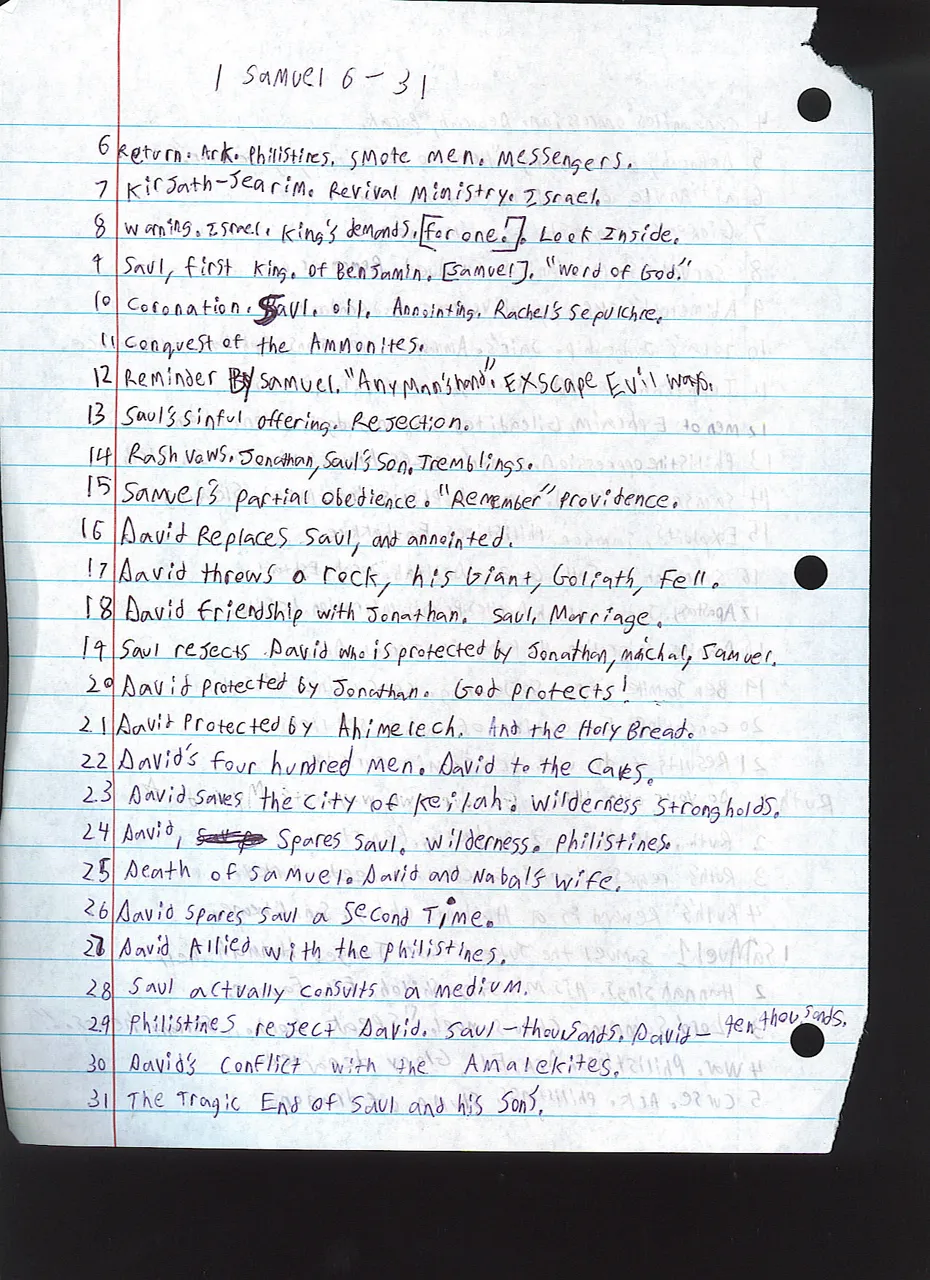 1 Samuel 6 - 31
6 Return. Ark. Philistines, smote men. Messengers.
7 Kirjath-Jearim. Revival Ministry. Israel.
8 warning. Israel. King's demands. [for one!]. Look Inside.
9 Saul, first King. of Benjamin. [Samuel]. "Word of God."
10 Coronation. Saul. oil. Annointing. Rachel's Sepulchre.
11 Conquest of the Ammonites.
12 Reminder By Samuel. "Any Man's hand". EXscape Evil ways.
13 Saul's sinful offering. Rejection.
14 Rash vows. Jonathan, Saul's Son. Tremblings.
15 Samuel's partial obedience. "Remember" providence.
16 David Replaces Saul, and annointed.
17 David throws a rock, his Giant, Goliath, Fell.
18 David friendship with Jonathan. Saul. Marriage.
19 Saul rejects David who is protected by Jonathan, michal, Samuel.
20 David protected by Jonathan. God protects!
21 David Protected by Ahimelech. And the Holy Bread.
22 David's four hundred men. David to the Caves.
23 David saves the City of Keilah. Wilderness strongholds.
24 David, Spares Saul. Wilderness. Philistines.
25 Death of Samuel. David and Nabal's wife.
26 David spares Saul a Second Time.
27 David Allied with the Philistines.
28 Saul actually consults a medium.
29 Philistines reject David. Saul - thousands. David - ten thousands.
30 David's Conflict with the Amalekites.
31 The Tragic End of Saul and his Sons.